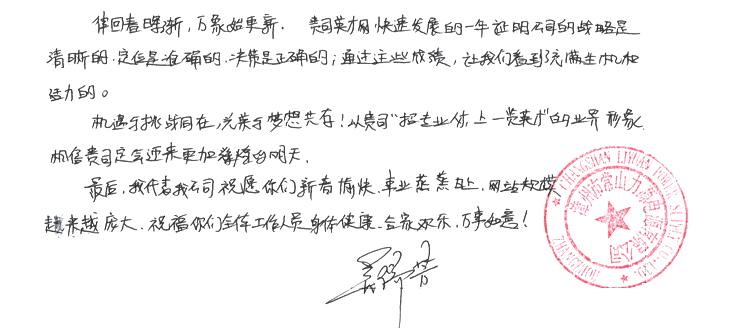 伴回春曙新，万象始更新. 贵司英才网快速发展的一年证明公司的战略是
清晰的.定位是准确的.决策是正确的；通过这些成绩，让我们看到充满生机和
活力的。
机遇与挑战同在，光荣与梦想共存！以贵司“招专业人才，上一览英才”的业界形象
相信贵司定会迎来更加辉煌的明天.
最后，我代表我公司祝愿你们新春愉快.事业蒸蒸日上.网站规模
越来越庞大.祝福你们全体工作人员身体健康.合家欢乐.万事如意！
CHANGSHAN LIYUAN CO.,LTD.